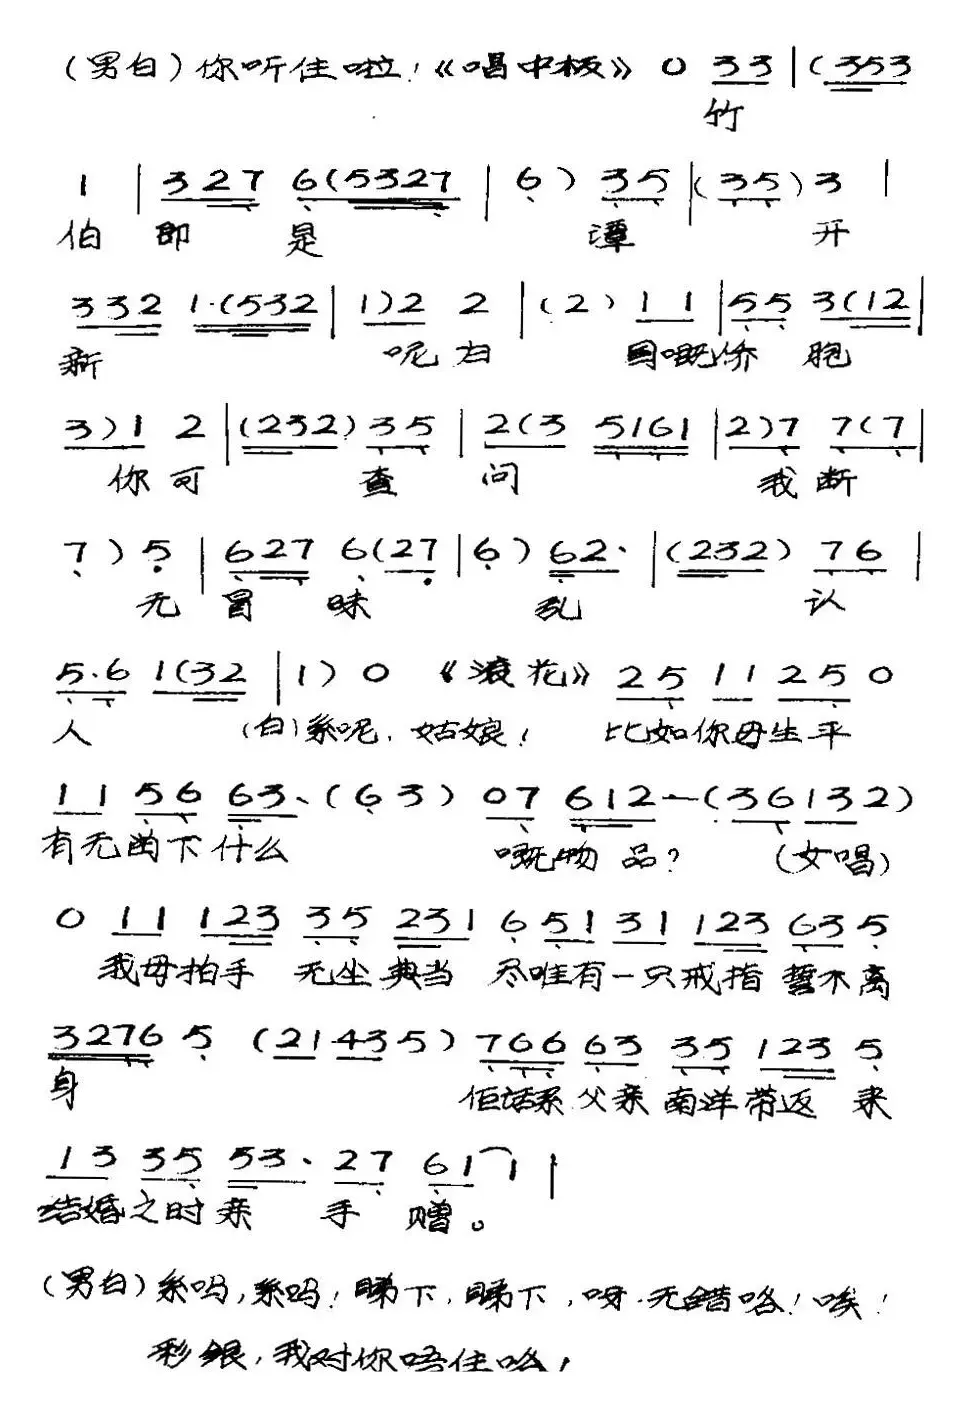 （男白）你听住啦！《唱中板》 0 3 3 | ( 3 5 3
竹
1 | 3 2 7 6 ( 5 3 2 7 | 6 ) 3 5 | ( 3 5 ) 3 |
伯 即 是 潭 开
3 3 2 1 · ( 5 3 2 | 1 ) 2 2 | ( 2 ) 1 1 | 5 5 3 ( 1 2 |
新 呢 方 国嘅侨 胞
3 ) 1 2 | ( 2 3 2 ) 3 5 | 2 ( 3 5 1 6 1 | 2 ) 7 7 ( 7 |
你 可 查 问 我 断
7 ) 5 | 6 2 7 6 ( 2 7 | 6 ) 6 2 · | ( 2 3 2 ) 7 6 |
无 冒 昧 乱 认
5 · 6 1 ( 3 2 | 1 ) 0 《滚花》 2 5 1 1 2 5 0
人 （白）系呢，姑娘！ 比如你母生平
1 1 5 6 6 3 、 ( 6 3 ) 0 7 6 1 2 — ( 3 6 1 3 2 )
有无凼下什么 嘅物 品？ （女唱）
0 1 1 1 2 3 3 5 2 3 1 6 5 1 3 1 1 2 3 6 3 5
我母拍手 无尘 典当 尽唯有一只戒指 誓不离
3 2 7 6 5 ( 2 1 4 3 5 ) 7 6 6 6 3 3 5 1 2 3 5
身 佢话系 父亲 南洋带返 来
1 3 3 5 5 3 · 2 7 6 1 1 |
结婚之时亲 手 赠。
（男白）系吗，系吗！睇下，睇下，呀·无错咯！唉！
彩银，我对你唔住咯，